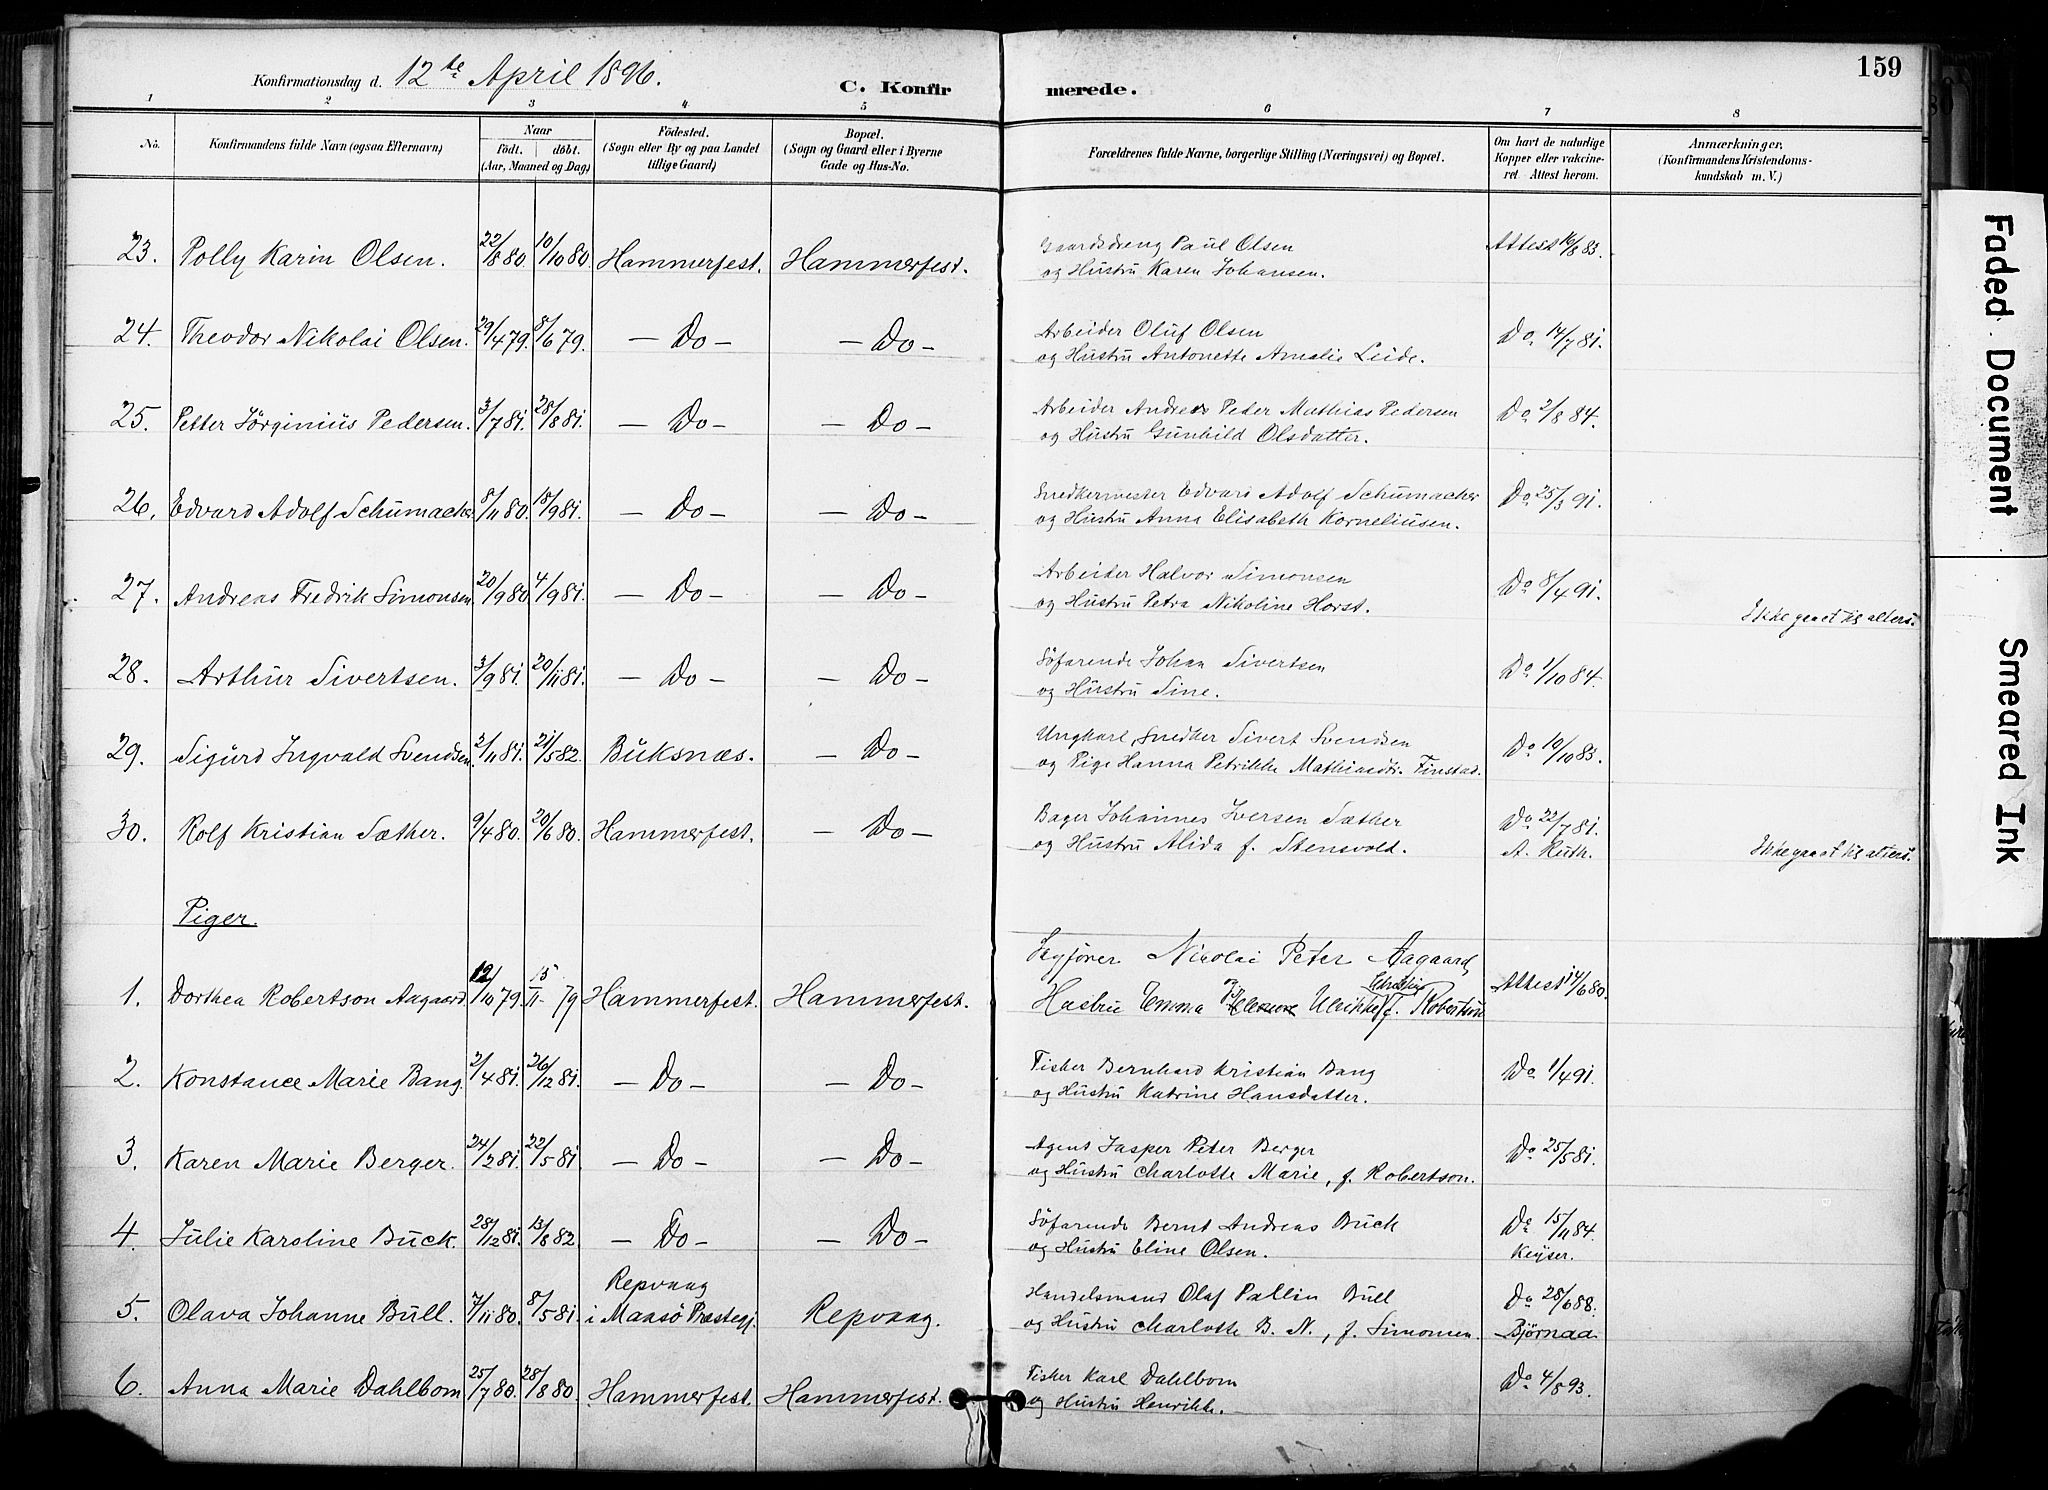 159
Konfirmationsdag d. 12te April 1896.
C. Konfirmerede.
1 2 3 4 5 6 7 8
No.
Konfirmandens fulde Navn (ogsaa Efternavn)
Naar
Födt. döbt.
(Aar, Maaned og Dag)
Födested.
(Sogn eller By og paa Landet
tillige Gaard)
Bopæl.
(Sogn og Gaard eller i Byerne
Gade og Hus-No.
Forældrenes fulde Navne, borgerlige Stilling (Næringsvei) og Bopæl.
Om havt de naturlige
Kopper eller vakcine-
ret. Attest herom.
Anmærkninger.
(Konfirmandens Kristendoms-
kundskab m. V.)
23. Polly Karin Olsen. 22/8 80. 10/10 80. Hammerfest. Hammerfest. Gaardsdreng Paul Olsen Attest 16/8 83.
og Hustru Karen Johansen.
24. Theodor Nikolai Olsen. 29/4 79. 8/6 79. — Do — — Do — Arbeider Oluf Olsen Do 14/7 81.
og Hustru Antonette Amalie Leide.
25. Petter Jörginius Pedersen. 3/7 81. 28/8 81. — Do — — Do — Arbeider Andreas Peter Mathias Pedersen Do 2/8 84.
og Hustru Gunhild Olsdatter.
26. Edvard Adolf Schumacher 8/11 80. 18/9 81. — Do — — Do — Snedkermester Edvard Adolf Schumacher Do 25/3 91.
og Hustru Anna Elisabeth Korneliusen.
27. Andreas Fredrik Simonsen 20/9 80. 4/9 81. — Do — — Do — Arbeider Halvor Simonsen Do 8/4 91.
og Hustru Petra Nikoline Horst. Ikke gaaet til alters.
28. Arthur Sivertsen. 3/9 81. 20/11 81. — Do — — Do — Söfarende Johan Sivertsen Do 1/10 84.
og Hustru Sine.
29. Sigurd Ingvald Svendsen 2/11 81. 21/5 82. Buksnæs. — Do — Ungkarl, Snedker Sivert Svendsen Do 10/10 83.
og Pige Hanna Petrikke Mathiasdtr. Finstad.
30. Rolf Kristian Sæther. 9/4 80. 20/6 80. Hammerfest. — Do — Bager Johannes Iversen Sæther Do 22/7 81.
og Hustru Alida f. Stensvold. A. Ruth. Ikke gaaet til alters.
Piger.
1. Dorthea Robertson Aagaard 12/10 79. 15/11 79 Hammerfest. Hammerfest. Skyförer Nicolai Peter Aagaard, Attest 14/6 80.
Hustru Emma Ulrikke f. Robertson
2. Konstance Marie Bang 2/4 81. 26/12 81. — Do — — Do — Fisker Bernhard Kristian Bang Do 1/4 91.
og Hustru Katrine Hansdatter.
3. Karen Marie Berger. 24/2 81. 22/5 81 — Do — — Do — Agent Jasper Peter Berger Do 25/5 81.
og Hustru Charlotte Marie, f. Robertson.
4. Julie Karoline Buck. 28/12 81. 13/8 82. — Do — — Do — Söfarende Bernt Andreas Buck Do 15/11 84.
og Hustru Eline Olsen. Keyser.
5. Olava Johanne Bull. 7/11 80. 8/5 81. Repvaag Repvaag. Handelsmand Olaf Pallin Bull Do 28/6 88.
i Maasö Præstegj. og Hustru Charlotte B. N., f. Simonsen. Björnaa
6. Anna Marie Dahlbom 25/7 80. 28/8 80. Hammerfest. Hammerfest. Fisker Karl Dahlbom Do 4/8 93.
og Hustru Henrikke.
Faded Document
Smeared Ink